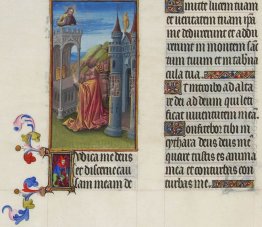 Iudica me deus
et discerne cau
sam meam de
mitte lucem tuam
et veritatem tuam ipsa
me deduxerunt et addu
xerunt in montem sanc
tum tuum et in taberna
cula tua.
Et introibo ad alta
re dei ad deum qui leti
ficat iuventutem meam.
Confitebor tibi in
cythara deus deus meus
quare tristis es anima
mea et conturbas con
turbas me.